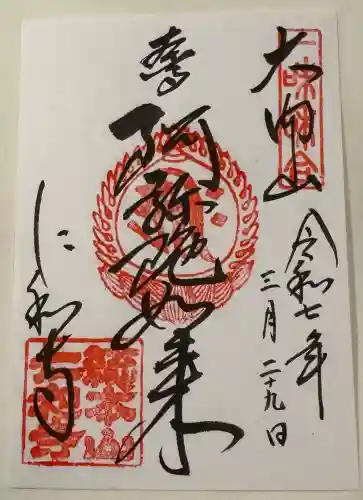 大内山
令和七年
三月二十九日
奉
阿弥陀如来
仁和寺
総本山
仁和寺